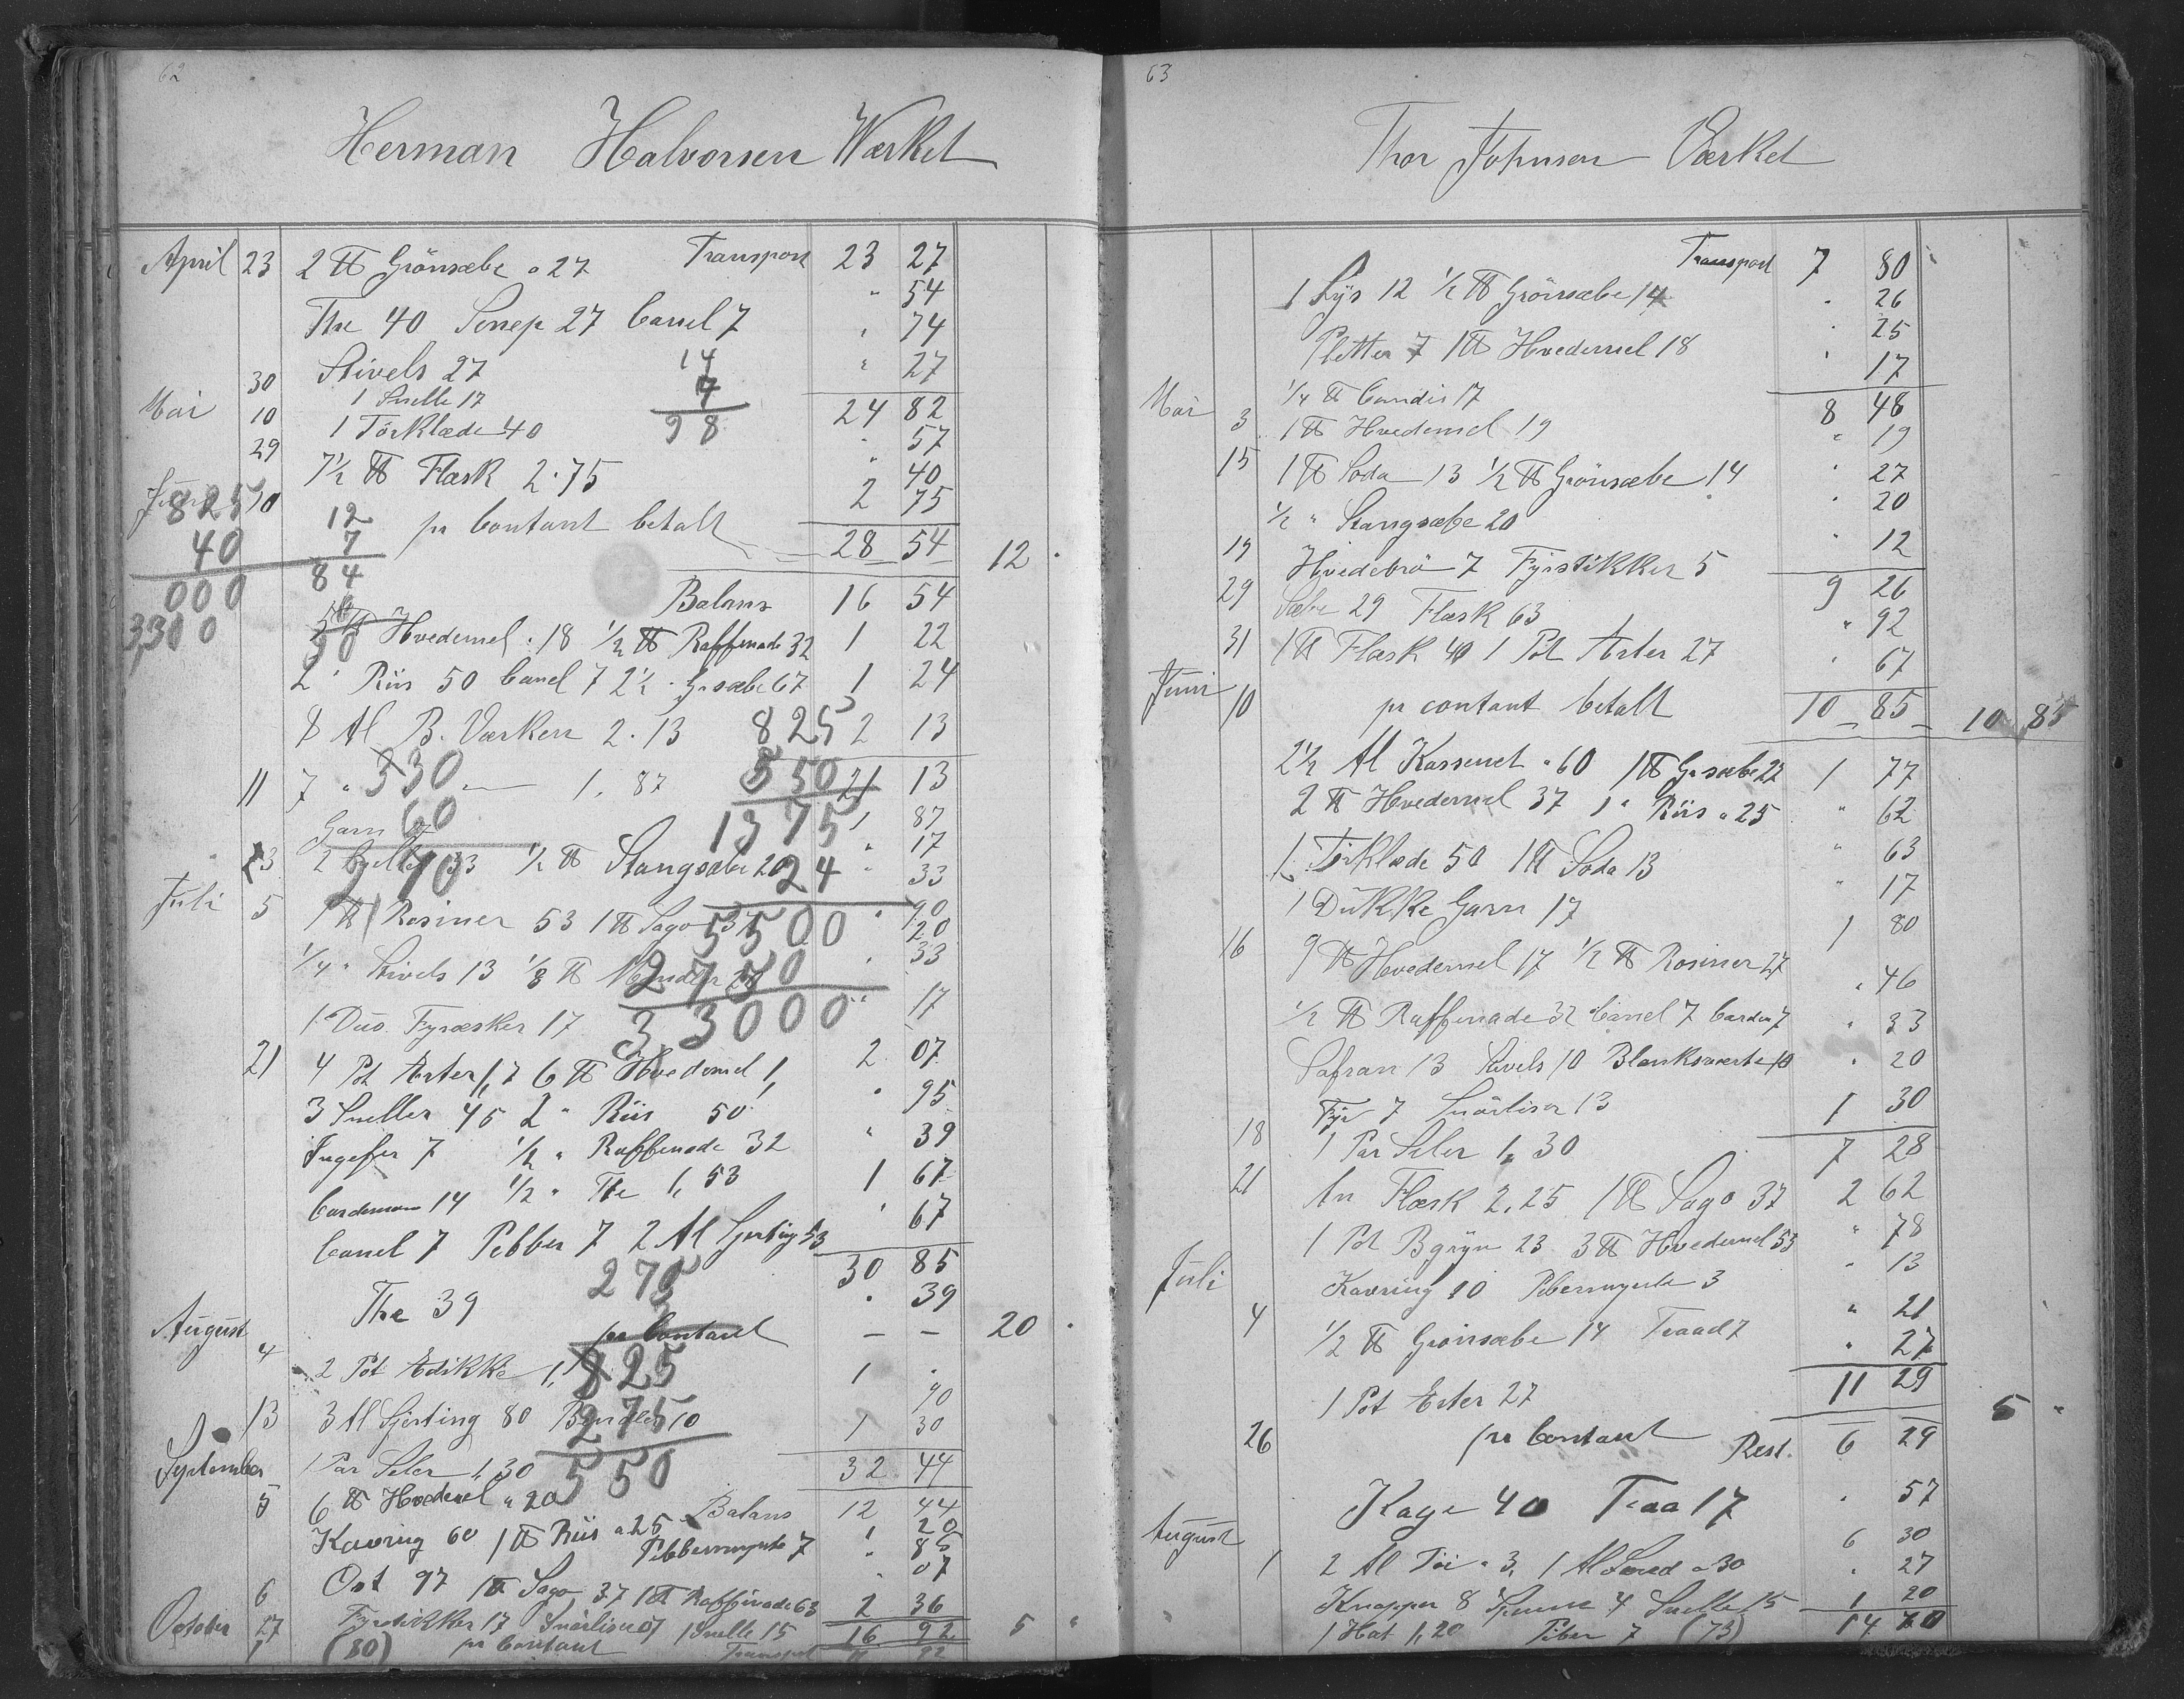 62
Herman Halvorsen Værket
April 23 2 ℔ Grönsæbe a 27 Transport 23 27
" 54
The 40 Senep 27 Canel 7 " 74
30 Stivels 27 " 27
24 82
Mai 10 1 Snelle 17
29 1 Törklæde 40 " 57
40
7½ ℔ Flæsk 2.75 2 75
10 pr Contant betalt 28 54 12 "
Balans 16 54
Hvedemel " 18 ½ ℔ Raffinade 32 1 22
2 " Riis 50 Canel 7 2½ " Gr sæbe 67 1 24
8 Al B. Værken 2.13 2 13
21 13
11 7 " — 1,87 1 87
Garn " 17
23 2 33 ½ ℔ Stangsæbe 20 " 33
Juli 5 1 ℔ Rosiner 53 1 ℔ Sago 37 " 90
20
¼ " Stivels 13 ⅛ ℔ " 33
1 Dus. Fyræsker 17 " 17
21 4 Pot Erter 1,7 6 ℔ Hvedemel 1, 2 07
3 Sneller 45 2 " Riis 50 " 95
Ingefer 7 ½ " Raffinade 32 " 39
Cardemom 14 ½ " The 1,53 1 67
Canel 7 Pebber 7 2 Al Sjerting 53 " 67
30 85
The 39 " 39
August 4 pr Contant — — 20 "
2 Pot Edikke 1, 1 "
13 3 Al Sjerting 80 10 90
1 Par Seler 1,30 1 30
32 44
September
5 6 ℔ Hvedemel " 20 Balans 12 44
1 20
Kavring 60 1 ℔ Riis a 25 " 85
Pebbermynte 7 " 07
6 Ost 97 1 ℔ Sago 37 1 ℔ Raffinade 63 2 36
October 27 Fyrstikker 17 1 Snelle 15 16 92 5 "
1 (80) pr Contant Transport 92
14
7
98
825
40
000
3,300
12
7
84
330
60
825
550
1375
24
5500
2750
3,3000
275
825
275
550
63
Thor Johnsen Værket
Transport 7 80
1 Lys 12 ½ ℔ Grönsæbe 14 " 26
Pletter 7 1 ℔ Hvedemel 18 " 25
¼ ℔ Candis 17 " 17
8 48
Mai 3 1 ℔ Hvedemel 19 " 19
15 1 ℔ Soda 13 ½ ℔ Grönsæbe 14 " 27
½ " Stangsæbe 20 " 20
19 Hvedebrö 7 Fyrstikker 5 " 12
9 26
29 Sæbe 29 Flæsk 63 " 92
31 1 ℔ Flæsk 40 1 Pot Erter 27 " 67
Juni 10 pr contant betalt 10 85 10 85
2½ Al Kassenet " 60 1 ℔ Gr sæbe 27 1 77
2 ℔ Hvedemel 37 1 " Riis a 25 " 62
1 Törklæde 50 1 ℔ Soda 13 " 63
1 Dukke Garn 17 " 17
16 9 ℔ Hvedemel 17 ½ ℔ Rosiner 27 1 80
½ ℔ Raffinade 32 Canel 7 Cardem 7 " 46
Safran 13 Stivels 10 Blanksværte 10 " 33
Fyr 7 Snörliser 13 " 20
18 1 Par Seler 1,30 1 30
7 28
21 Flæsk 2,25 1 ℔ Sago 37 2 62
1 Pot Bgryn 23 3 ℔ Hvedemel 55 " 78
Juli Kavring 10 Pebermynte 3 " 13
4 ½ ℔ Grönsæbe 14 Traad 7 " 21
1 Pot Erter 27 " 27
11 29
26 pr Contant 5 "
Rest. 6 29
Kage 40 Traa 17 " 57
August 1 2 Al Töi a 3, 1 Al Lered a 30 6 30
Knapper 8 4 Snelle 15 " 27
1 Hat 1,20 Piber 7 (73) 1 20
14 70